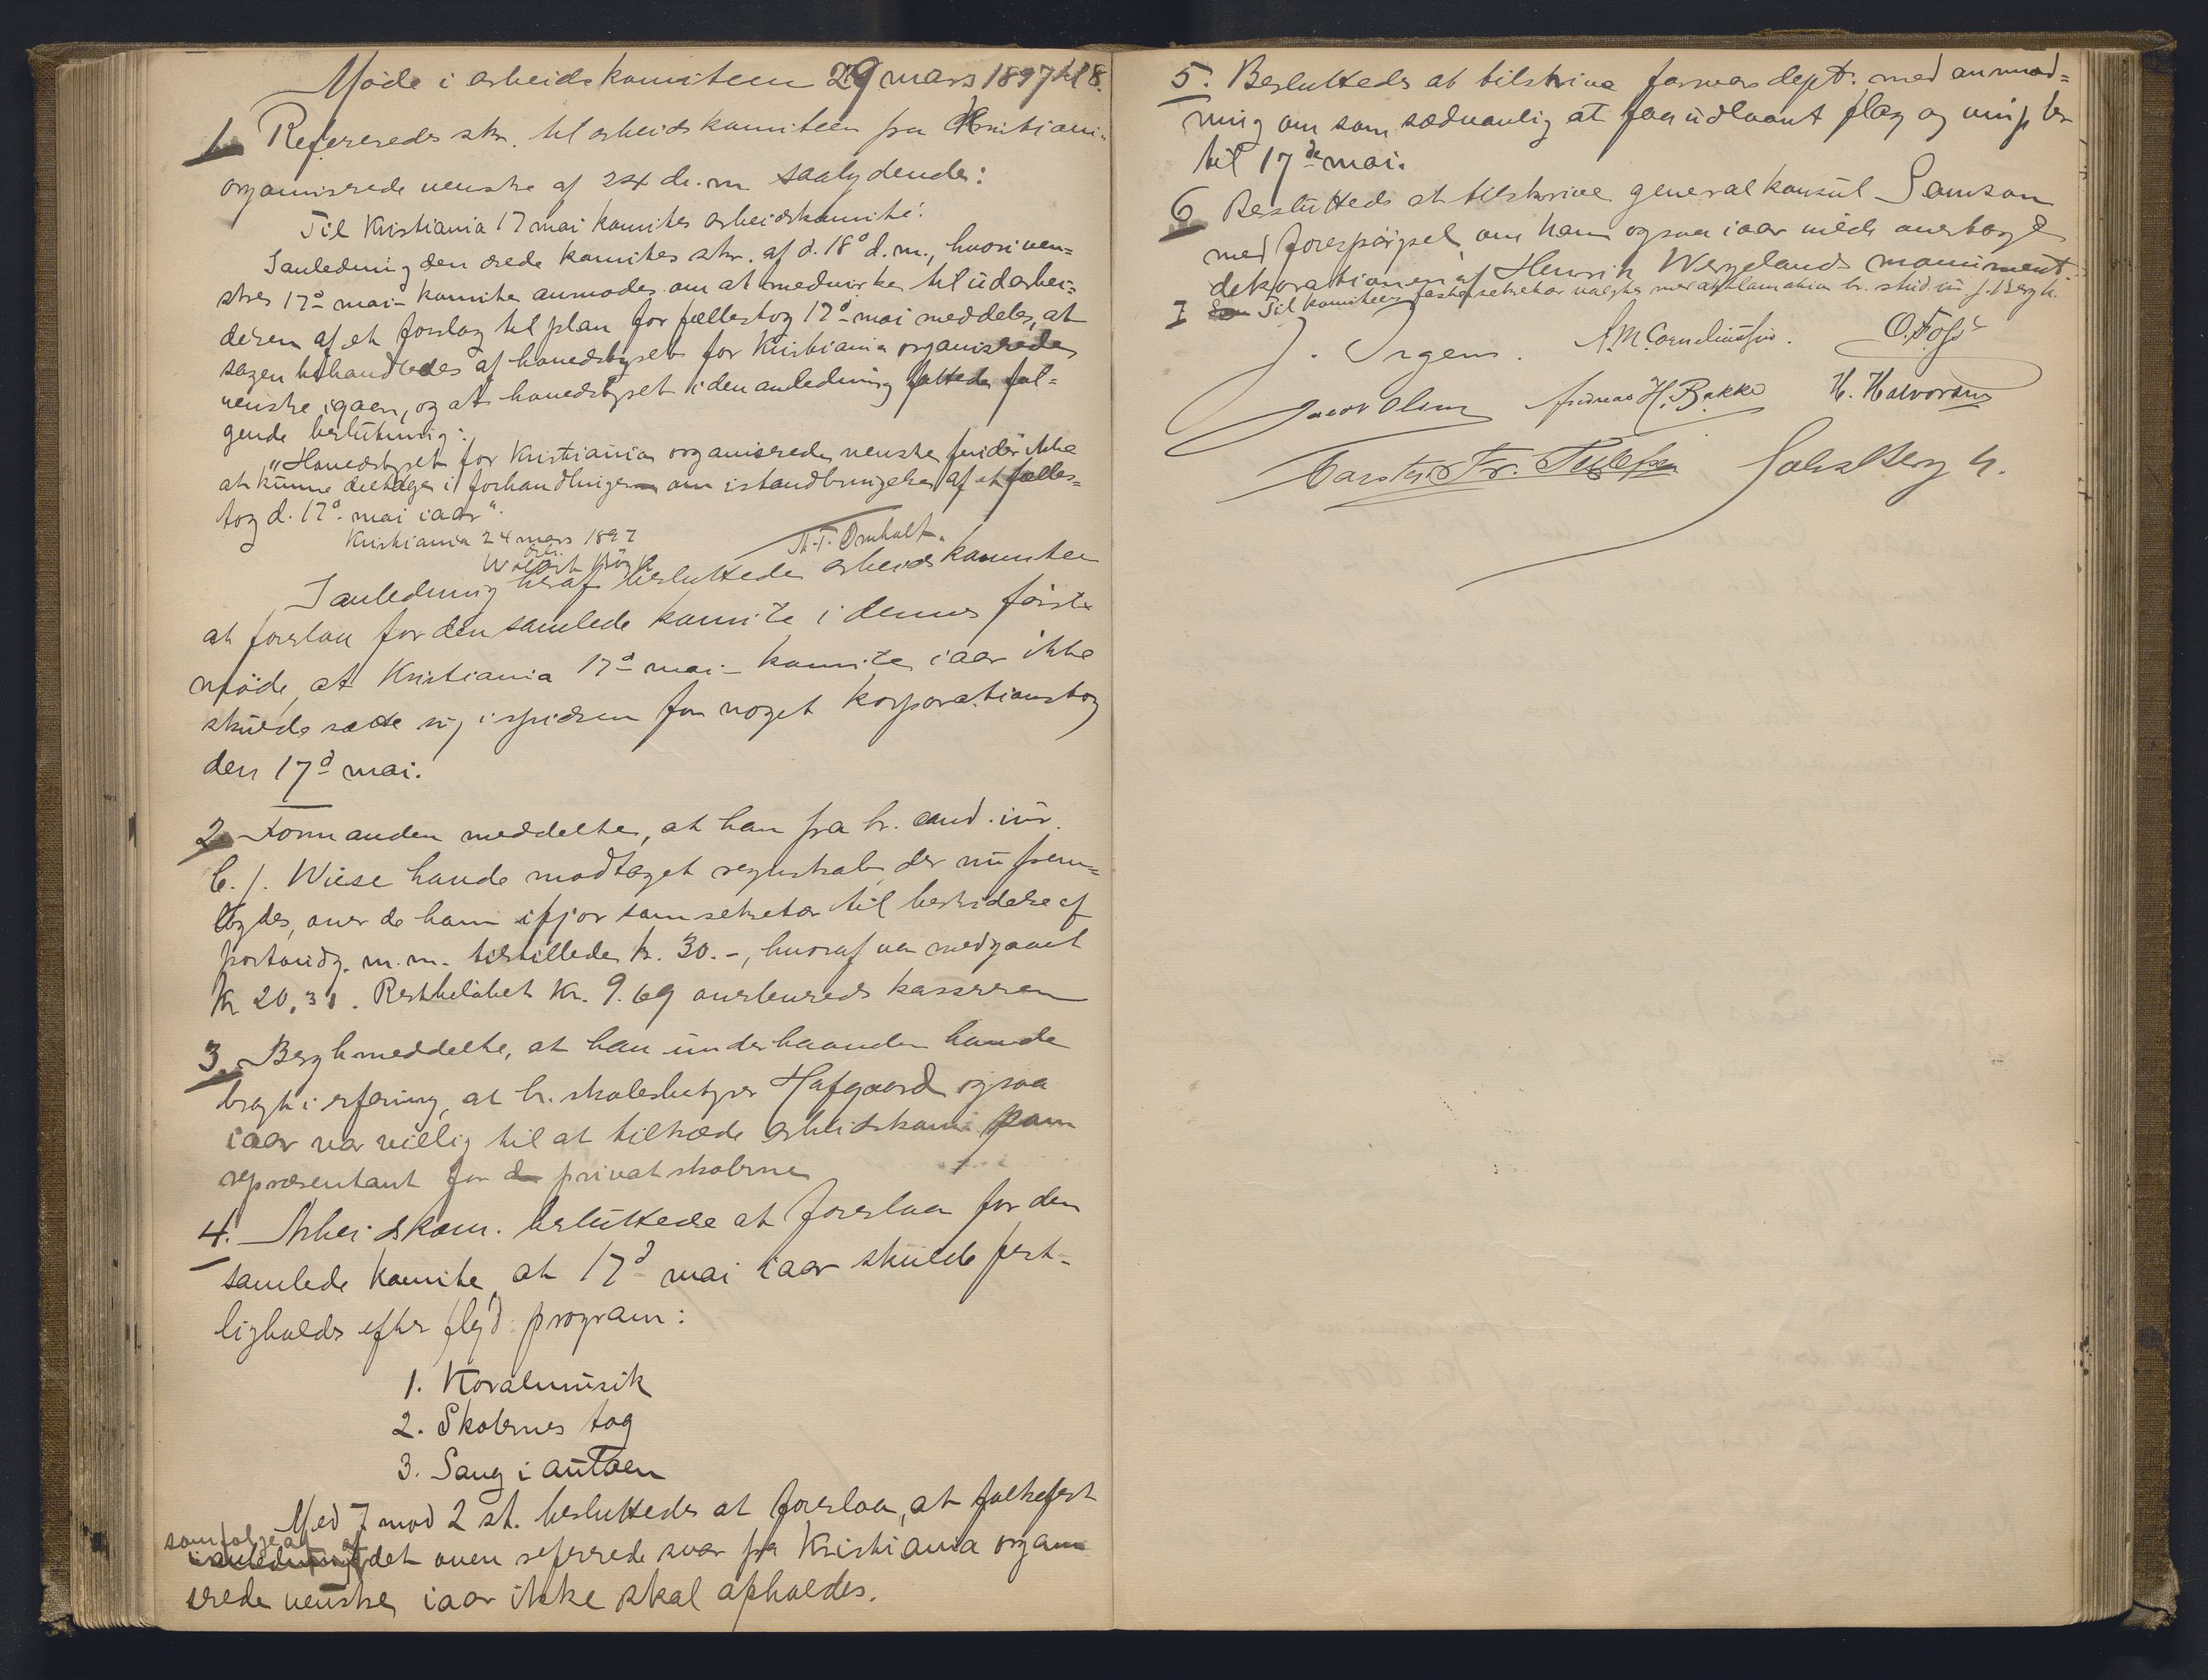 Møde i arbeidskomiteen 29 mars 1897 kl 8.
1. Refereredes skr. til arbeidskomiteen fra Kristiania
organiserede venstre af 24 ds. m saalydende:
Til Kristiania 17 mai komites arbeidskomite!
I anledning den ærede komites skr. af d. 18de d. m., hvori ven-
stres 17de mai-komite anmodes om at medvirke til udarbei-
delsen af et forslag til plan for fællestog 17de mai meddeles, at
sagen behandledes af hovedstyret for Kristiania organiserede
venstre igaar, og at hovedstyret i den anledning fattede føl-
gende beslutning:
"Hovedstyret for Kristiania organiserede venstre finder ikke
at kunne deltage i forhandlinger om istandbringelse af et fælles-
tog d. 17de mai iaar".
Kristiania 24 mars 1897
Th. T. Omholt.
I anledning heraf besluttede arbeidskomiteen
at foreslaa for den samlede komite i dennes første
møde, at Kristiania 17de mai-komite iaar ikke
skulde sætte sig i spidsen for noget korporationstog
den 17de mai.
2. Formanden meddelte, at han fra hr. cand. jur.
C. J. Wiese havde modtaget regnskab, der nu frem-
lagdes, over de ham ifjor som sekretær til bestridelse af
portoudg. m. m. tilstillede kr. 30.-, hvoraf var medgaaet
Kr 20,31. Restbeløbet Kr. 9.69 overleveredes kassereren
3. Bergh meddelte, at han underhaanden havde
bragt i erfaring, at hr. skolebestyrer Hofgaard ogsaa
iaar var villig til at tiltræde arbeidskom. som
repræsentant for de privatskolerne
4. Arbeidskom. besluttede at foreslaa for den
samlede komite, at 17de mai iaar skulde fest-
ligholdes efter flgd. program:
1. Koralmusik
2. Skolernes tog
3. Sang i aulaen
Med 7 mod 2 st. besluttedes at foreslaa, at folkefest
som følge af
i anledning af det oven refererede svar fra Kristiania organi
serede venstre iaar ikke skal afholdes.
5. Besluttedes at tilskrive forsvarsdept. med anmod-
ning om som sædvanlig at faa udlaant flag og vimpler
til 17de mai.
6 Besluttedes at tilskrive generalkonsul Samson
med forespørgsel, om han ogsaa iaar vilde overtage
dekorationen af Henrik Wergelands monument.
7 Som Til komiteens faste sekretær valgtes med akklamation hr. stud. jur. J. Bergh.
J. Irgens. A. M. Corneliussen. O. Foss
Jacob Olsen Andreas H. Bakke H. Halvorsen
Carsten Fr. Tellefsen